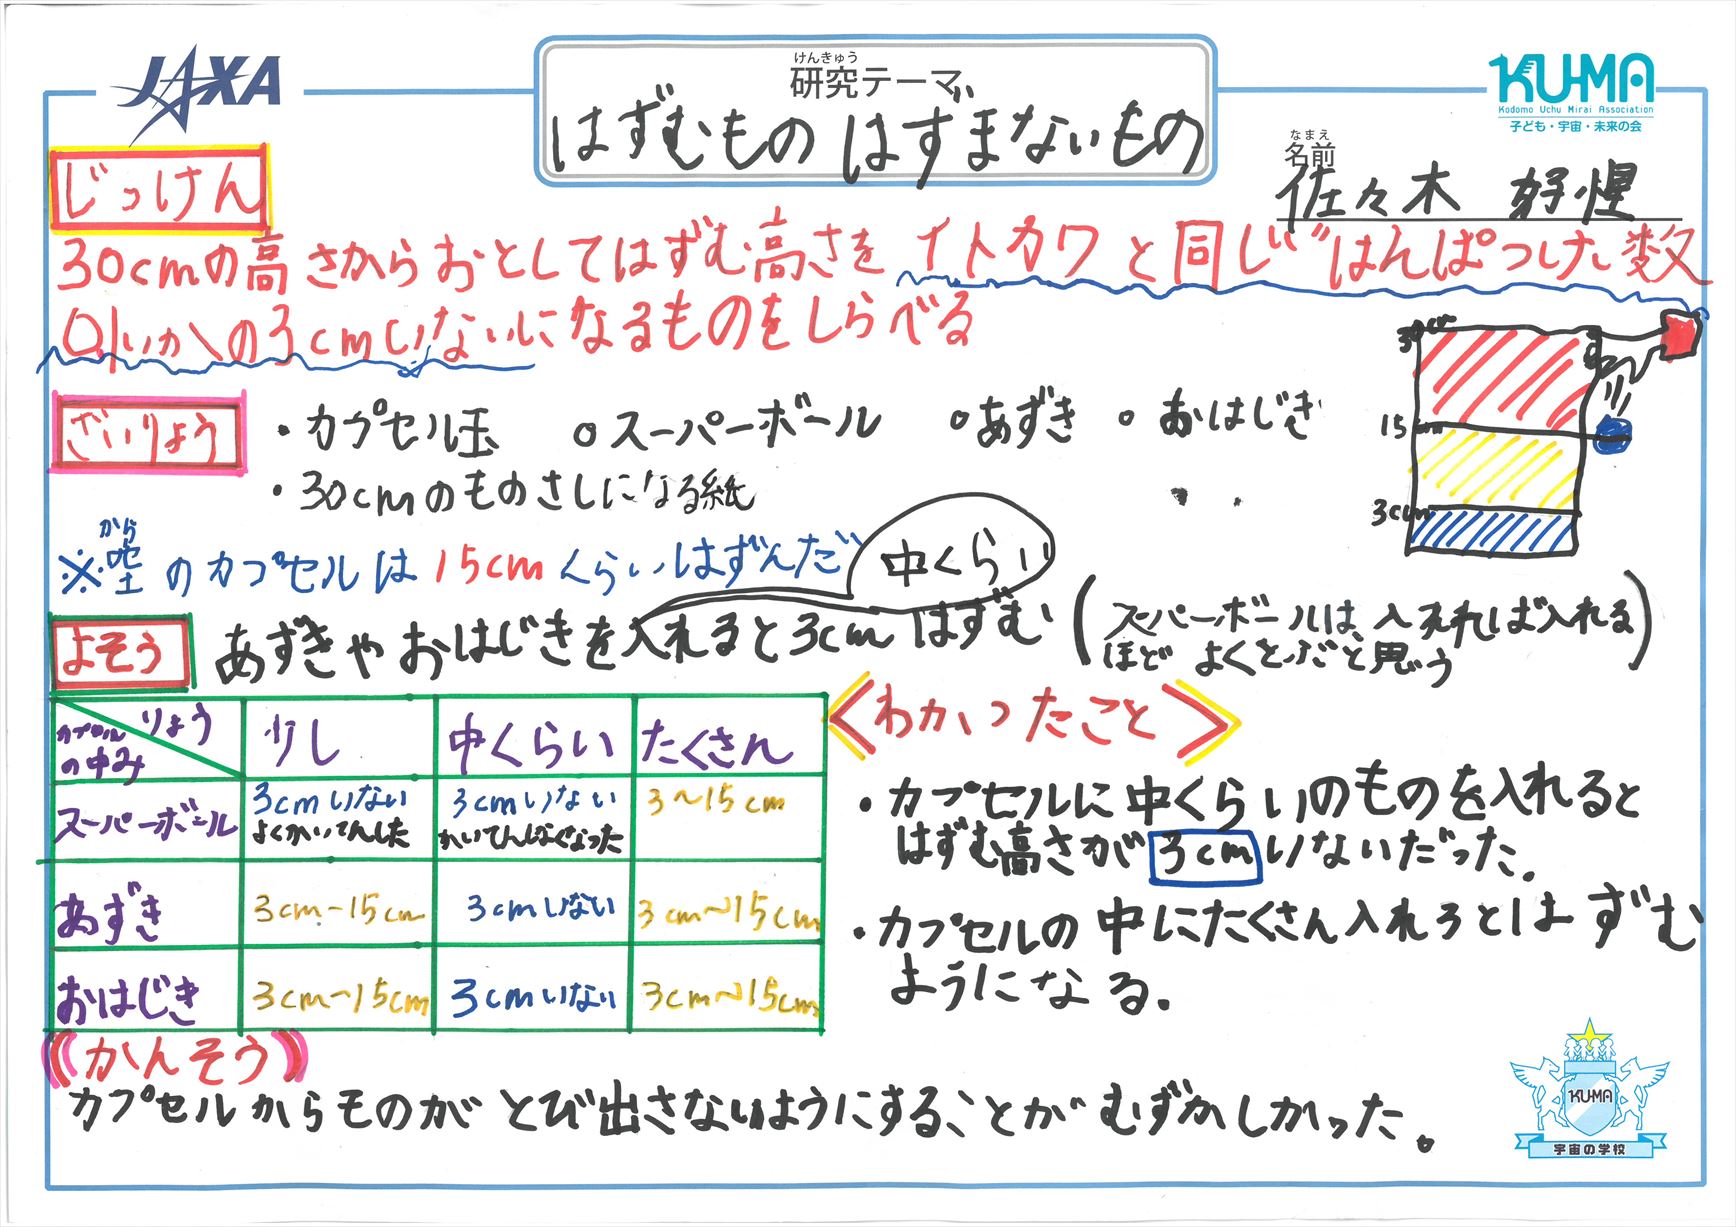 JAXA
けんきゅう
研究テーマ
はずむもの はずまないもの
KU-MA
Kodomo Uchu Mirai Association
子ども・宇宙・未来の会
なまえ
名前
佐々木 好惺
じっけん
30cmの高さからおとしてはずむ高さをイトカワと同じはんぱつけい数
0.1いかの3cmいないになるものをしらべる
ざいりょう
・カプセル玉 ○スーパーボール ○あずき ○おはじき
・30cmのものさしになる紙
30cm
15cm
3cm
から
※空のカプセルは15cmくらいはずんだ
中くらい
よそう
あずきやおはじきを入れると3cmはずむ
(スーパーボールは、入れれば入れる
ほどよくとぶと思う)
カプセルの中み りょう 少し 中くらい たくさん
スーパーボール 3cmいない よくかいてんした 3cmいない かいてんしなくなった 3〜15cm
あずき 3cm-15cm 3cmいない 3cm〜15cm
おはじき 3cm〜15cm 3cmいない 3cm〜15cm
《わかったこと》
・カプセルに中くらいのものを入れると
はずむ高さが3cmいないだった。
・カプセルの中にたくさん入れるとはずむ
ようになる。
《かんそう》
カプセルからものがとび出さないようにすることがむずかしかった。
KU-MA
宇宙の学校